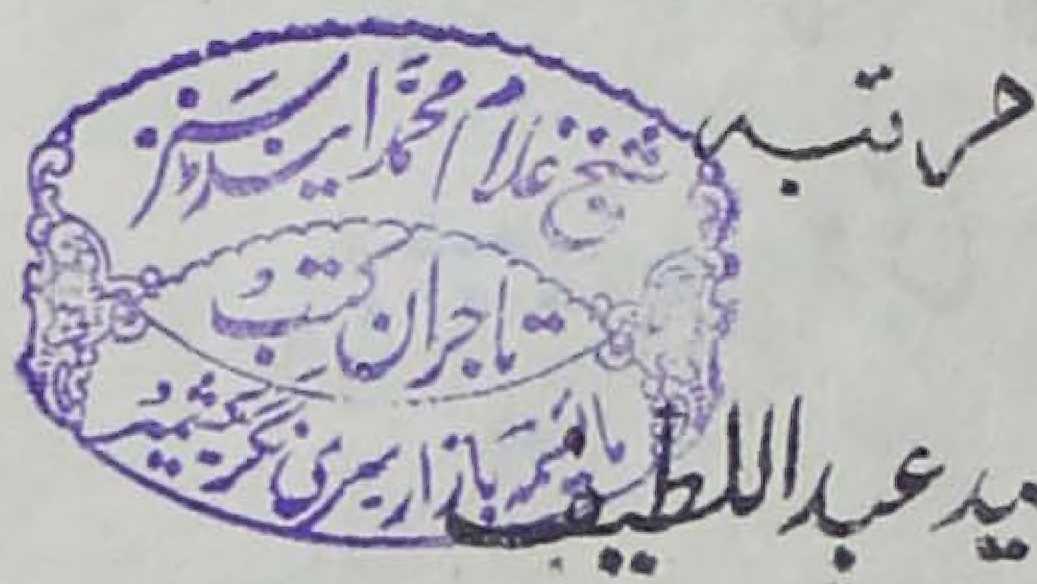 مرتبہ
شیخ غلام محمد اینڈ سنز
تاجران کتب
مائسمہ بازار سرینگر کشمیر
عبداللطیف